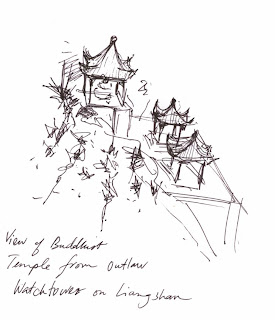 View of Buddhist
Temple from Outlaw
Watchtower on Liangshan